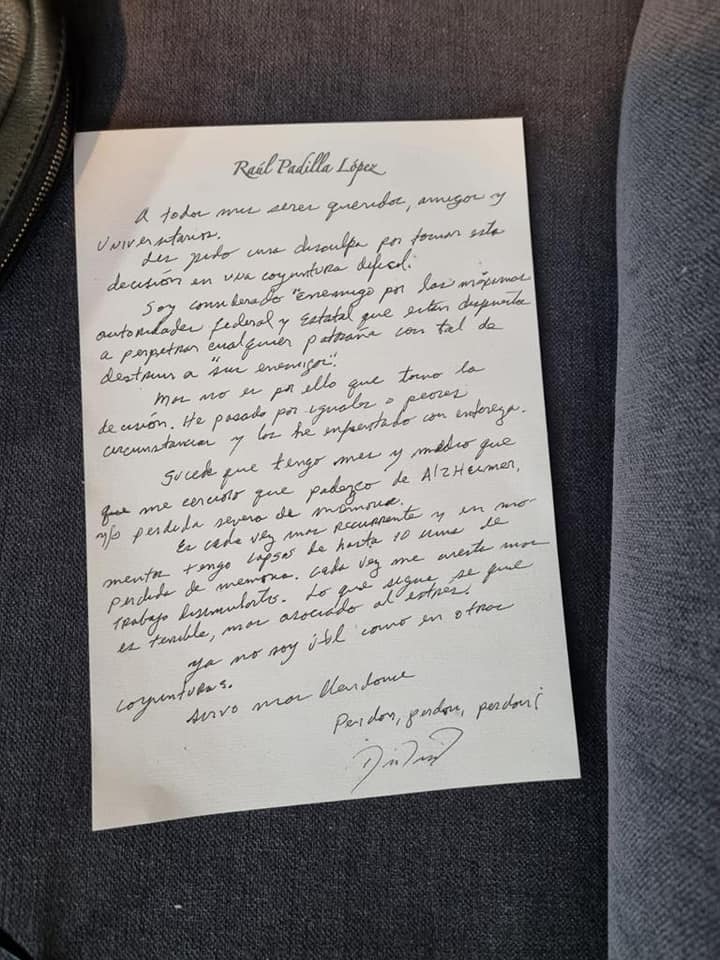 Raúl Padilla López
A todos mis seres queridos, amigos y
Universitarios.
Les pido una disculpa por tomar esta
decisión en una coyuntura difícil.
Soy considerado "Enemigo por las máximas
autoridades federal y Estatal que están dispuestas
a perpetrar cualquier patraña con tal de
destruir a "sus enemigos".
Mas no es por ello que tomo la
decisión. He pasado por iguales o peores
circunstancias y las he enfrentado con entereza.
Sucede que tengo mes y medio que
que me cercioro que padezco de Alzheimer,
y/o perdida severa de memoria.
Es cada vez mas recurrente y en mo-
mentos tengo lapsos de hasta 10 mins de
perdida de memoria. Cada vez me cuesta mas
trabajo disimularlo. Lo que sigue se que
es terrible, mas asociado al estres.
Ya no soy útil como en otras
coyunturas.
Sirvo mas yéndome
Perdon, perdon, perdon!